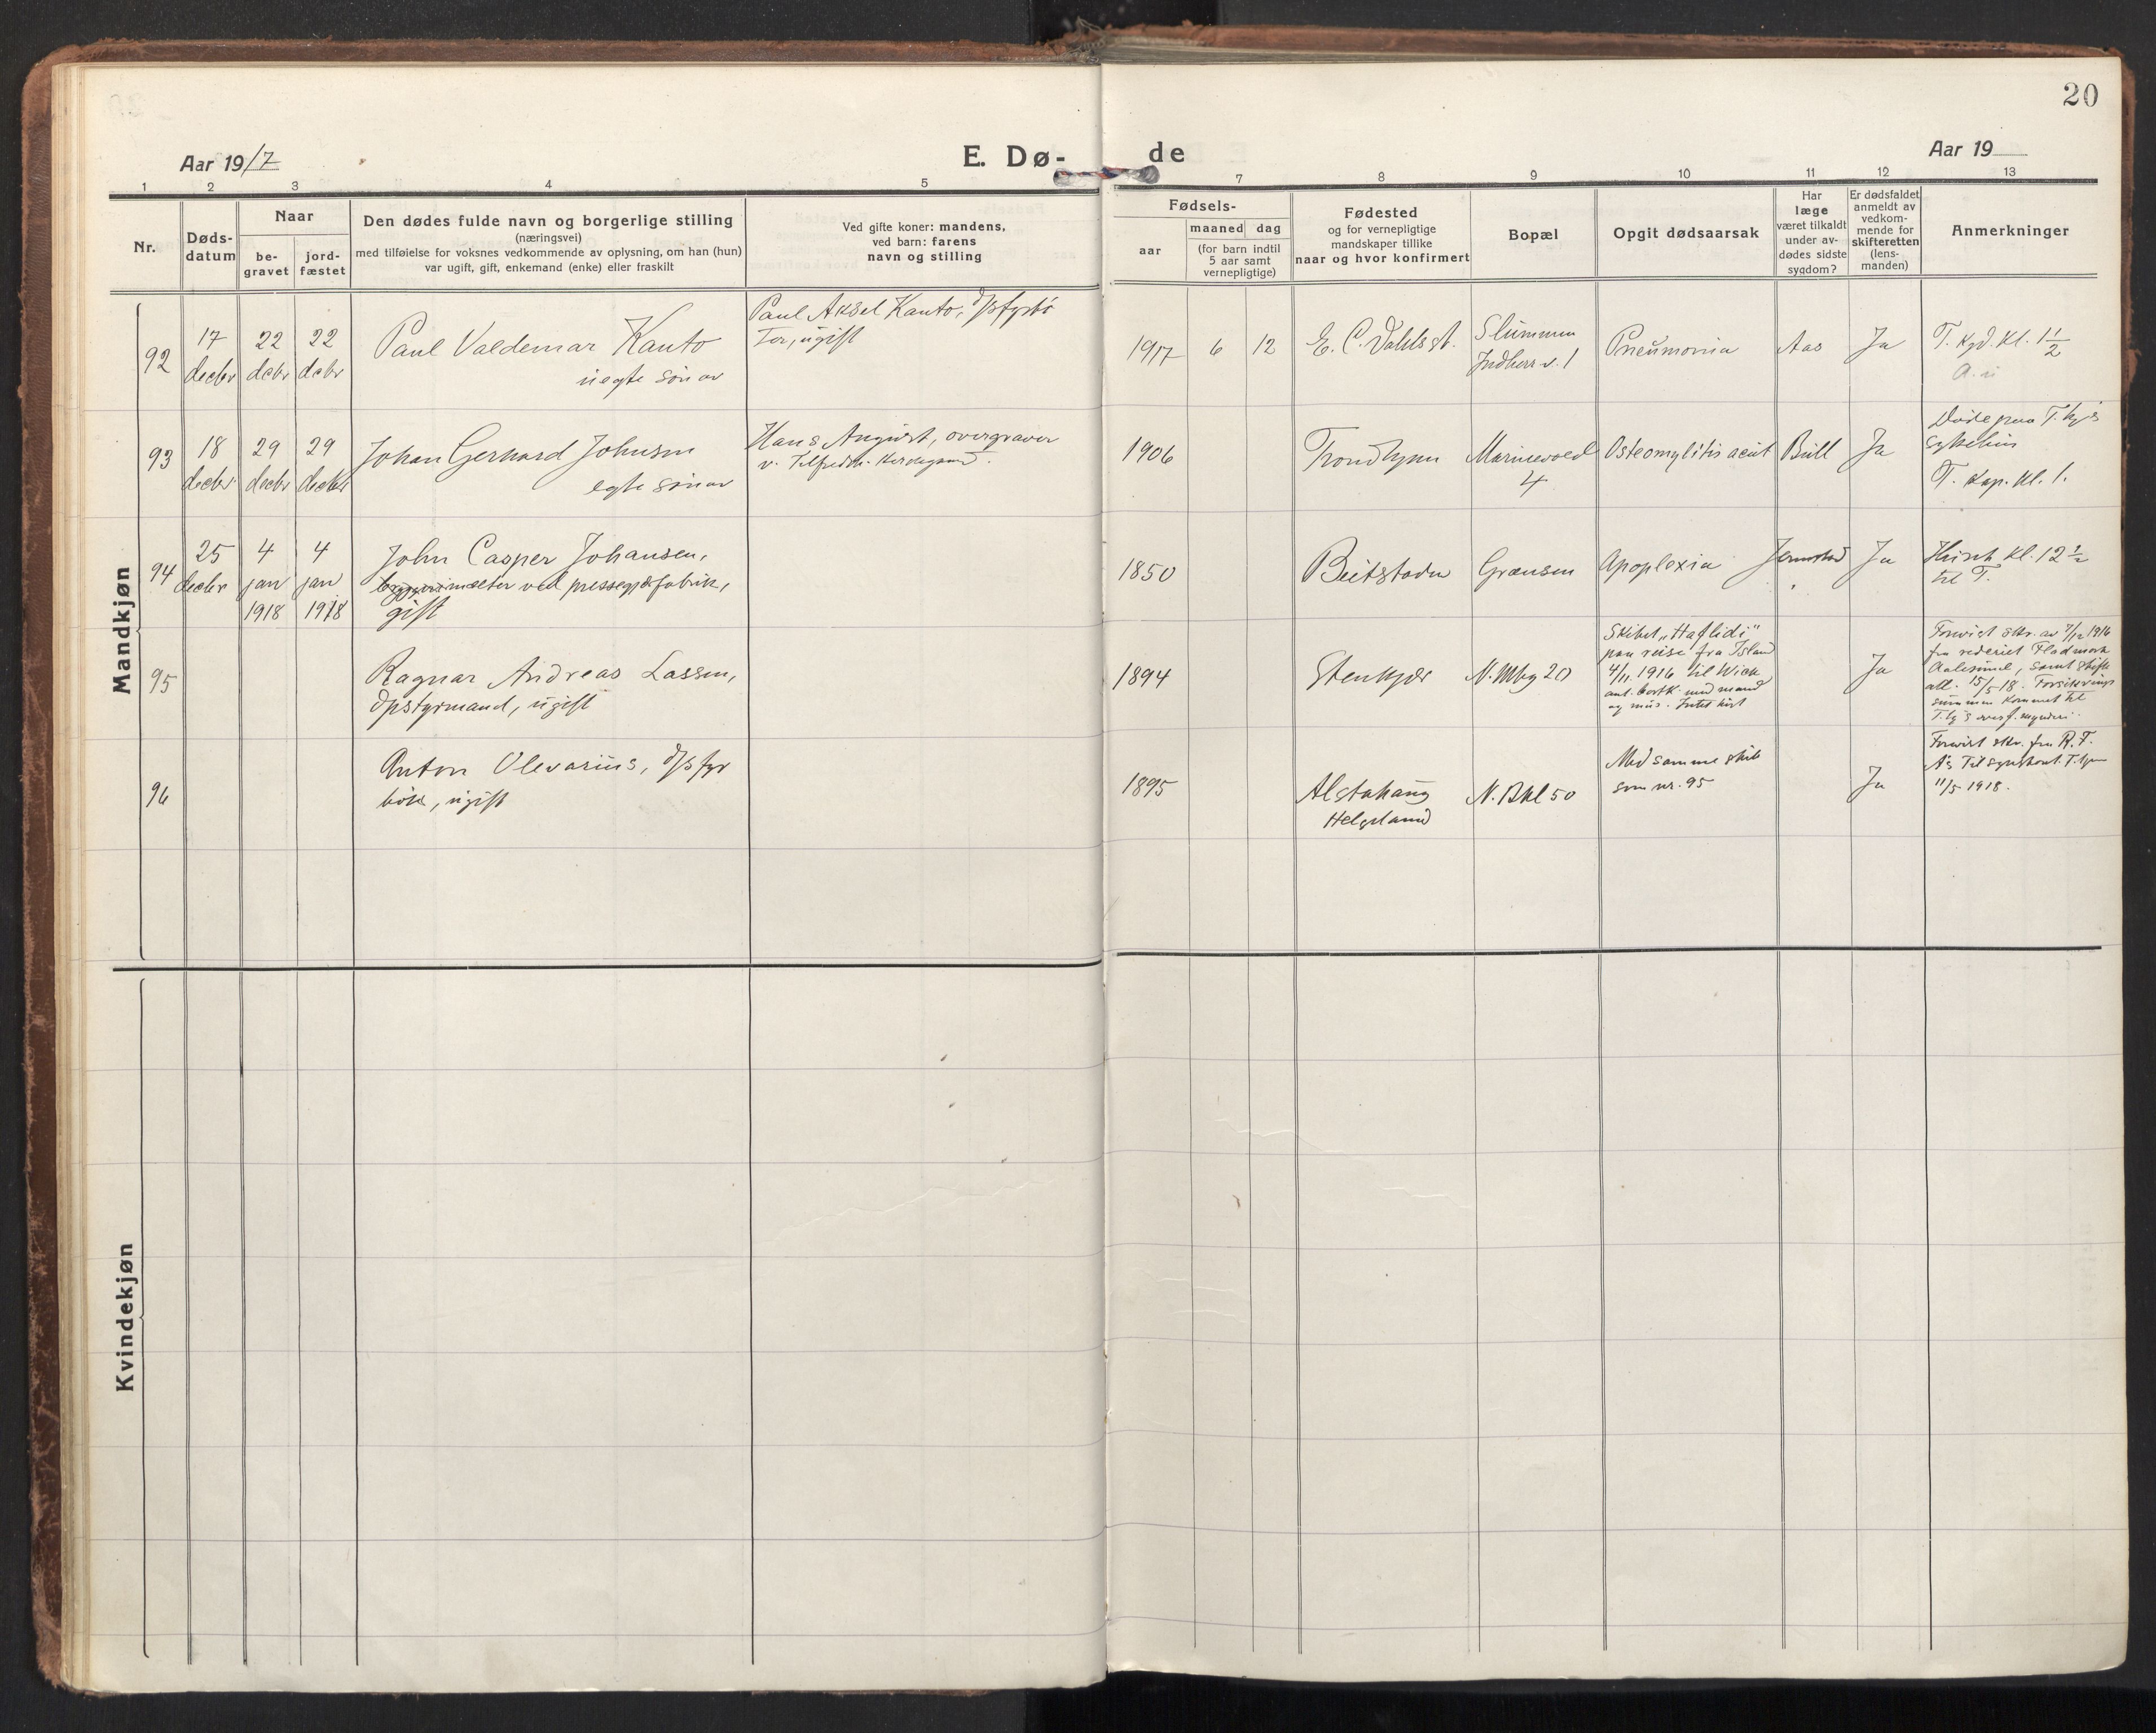 20
Aar 1917
E. Dø-
de
Aar 19
1 2 3 4 5
7 8 9 10 11 12 13
Nr.
Døds-
datum
Naar
be-
gravet
jord-
fæstet
Den dødes fulde navn og borgerlige stilling
(næringsvei)
med tilføielse for voksnes vedkommende av oplysning, om han (hun)
var ugift, gift, enkemand (enke) eller fraskilt
Ved gifte koner: mandens,
ved barn: farens
navn og stilling
Fødsels-
aar
maaned dag
(for barn indtil
5 aar samt
vernepligtige)
Fødested
og for vernepligtige
mandskaper tillike
naar og hvor konfirmert
Bopæl
Opgit dødsaarsak
Har
læge
været tilkaldt
under av-
dødes sidste
sygdom?
Er dødsfaldet
anmeldt av
vedkom-
mende for
skifteretten
(lens-
manden)
Anmerkninger
Mandkjøn
92
17
decbr
22
decbr
22
decbr
Paul Valdemar Kanto
uegte søn av
Paul Aksel Kanto, d/s fyrbø
ter, ugift
1917 6 12
E. C. Dahls st.
Slummen
Indherr.v. 1
Pneumonia
Aas
Ja
T. Kgd. Kl. 1 1/2
93
18
decbr
29
decbr
29
decbr
Johan Gerhard Johnsen
egte søn av
Hans August, overgraver
v. Tilfredsh. Kirkegaard.
1906
Trondhjem
Marinevold
4
Osteomylitis acut
Bull
Ja
Døde paa T.hjs
sykehus
T. Kap. Kl. 1.
94
25
decbr
4
jan
1918
4
jan
1918
John Casper Johansen,
ved pressegjærfabrik,
gift
1850
Beitstaden
Grænsen
Apoplexia
Jermstad
Ja
Huset Kl. 12 1/2
til T.
95
Ragnar Andreas Lassen,
d/s styrmand, ugift
1894
Stenkjær
N. Mbg 20
Skibet "Haflidi"
paa reise fra Island
4/11. 1916 til Wick
ant. bortk. med mand
og mus. Intet hørt
Ja
Forevist skr. av 7/12 1916
fra rederiet Fladmark
Aalesund, samt skifte
att. 15/5 18. Forsikrings
summen kommet til
T.hj's overf.mynderi.
96
Anton Olevarius, d/s fyr
bøt, ugift
1895
Alstahaug
Helgeland
N. Bkl 50
Med samme skib
som nr. 95
Ja
Forevist skr. fra R. T.
A's Tilsynskont. T.hjem
11/5 1918.
Kvindekjøn